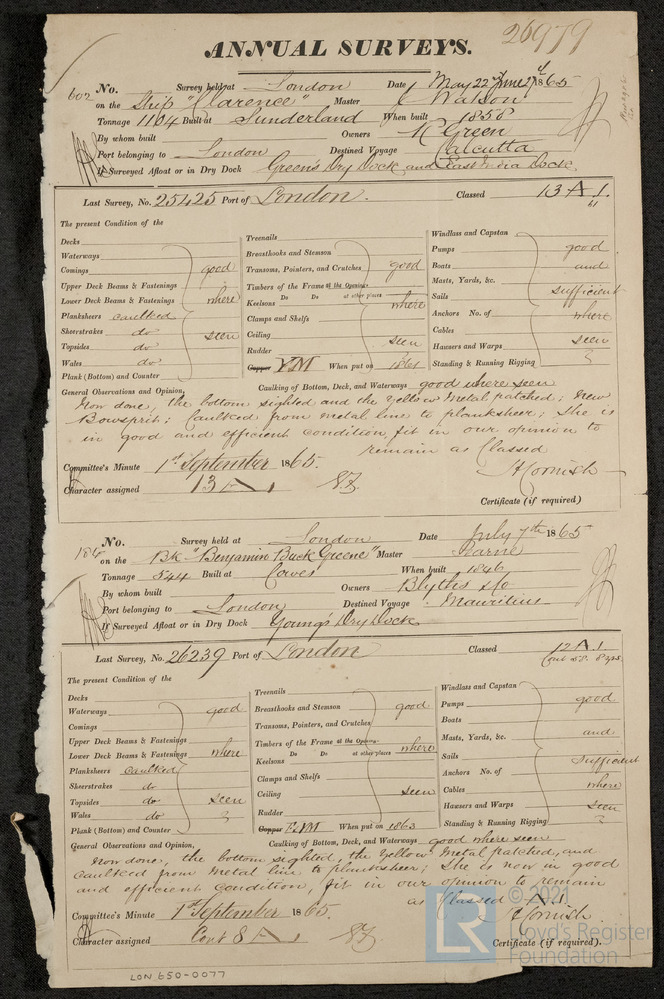 26979
ANNUAL SURVEYS.
602 No. Survey held at London Date May 22 June 2d 1865
on the Ship "Clarence" Master Watson
Tonnage 1104 Built at Sunderland When built 1858
By whom built Owners R Green
Port belonging to London Destined Voyage Calcutta
If Surveyed Afloat or in Dry Dock Green's Dry Dock and East India Dock
Last Survey, No. 25425 Port of London. Classed 13 A 1.
61
The present Condition of the
Decks
Waterways
Comings good
Upper Deck Beams & Fastenings
Lower Deck Beams & Fastenings where
Planksheers caulked
Sheerstrakes do seen
Topsides do
Wales do
Plank (Bottom) and Counter
Treenails
Breasthooks and Stemson
Transoms, Pointers, and Crutches good
Timbers of the Frame at the Openings
Do Do at other places
Keelsons where
Clamps and Shelfs
Ceiling seen
Rudder
Copper YM When put on 1861
Windlass and Capstan
Pumps good
Boats and
Masts, Yards, &c.
Sails sufficient
Anchors No. of where
Cables
Hawsers and Warps seen
Standing & Running Rigging
Caulking of Bottom, Deck, and Waterways good where seen
General Observations and Opinion,
Now done, the bottom sighted and the yellow metal patched; New
Bowsprit; Caulked from metal line to planksheer; She is
in good and efficient condition, fit in our opinion to
remain as Classed
Committee's Minute 1st September 1865.
H Cornish
Character assigned 13 A 1
Certificate (if required)
186 No. Survey held at London Date July 7th 1865
on the Bk "Benjamin Buck Greene" Master Pearne
Tonnage 544 Built at Cowes When built 1846
By whom built Owners Blyths & Co
Port belonging to London Destined Voyage Mauritius
If Surveyed Afloat or in Dry Dock Young's Dry Dock
Last Survey, No. 26239 Port of London Classed 12 A 1.
Cont 58. 8 yrs
The present Condition of the
Decks
Waterways good
Comings
Upper Deck Beams & Fastenings
Lower Deck Beams & Fastenings where
Planksheers caulked
Sheerstrakes do
Topsides do seen
Wales do
Plank (Bottom) and Counter
Treenails
Breasthooks and Stemson good
Transoms, Pointers, and Crutches
Timbers of the Frame at the Openings
Do Do at other places where
Keelsons
Clamps and Shelfs
Ceiling seen
Rudder
Copper YM When put on 1863
Windlass and Capstan
Pumps good
Boats
Masts, Yards, &c. and
Sails sufficient
Anchors No. of
Cables where
Hawsers and Warps seen
Standing & Running Rigging
Caulking of Bottom, Deck, and Waterways good where seen
General Observations and Opinion,
Now done, the bottom sighted, the yellow metal patched, and
caulked from metal line to planksheer; She is now in good
and efficient condition, fit in our opinion to remain
as Classed A 1.
Committee's Minute 1st September 1865.
H Cornish
Character assigned Cont 8 A 1
Certificate (if required).
LON 650-0077
LR
© 2021
Lloyd's Register
Foundation